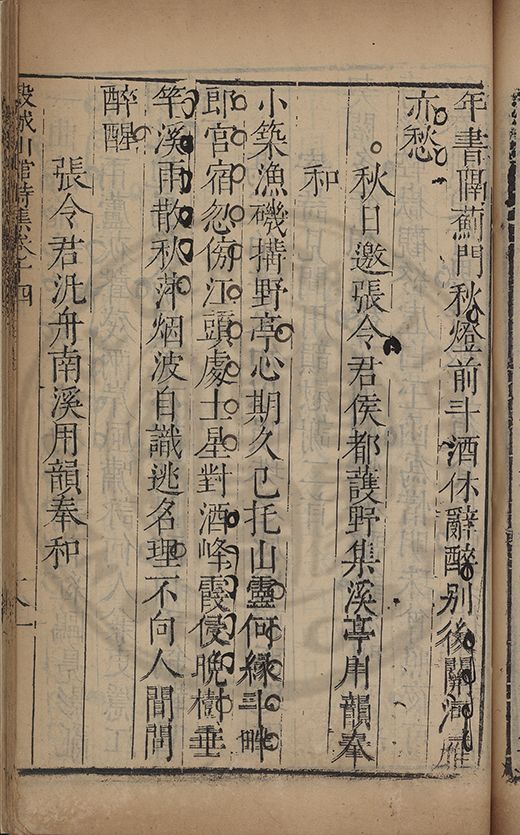 年書隔薊門秋燈前斗酒休辭醉別後關河雁
亦愁
秋日邀張令君侯都護野集溪亭用韻奉
和
小築漁磯搆野亭心期久已托山靈何緣斗畔
郎官宿忽傍江頭處士星對酒峰霞侵晚樹垂
竿溪雨散秋萍烟波自識逃名理不向人間問
醉醒
張令君汎舟南溪用韻奉和
穀城山館詩集卷十四